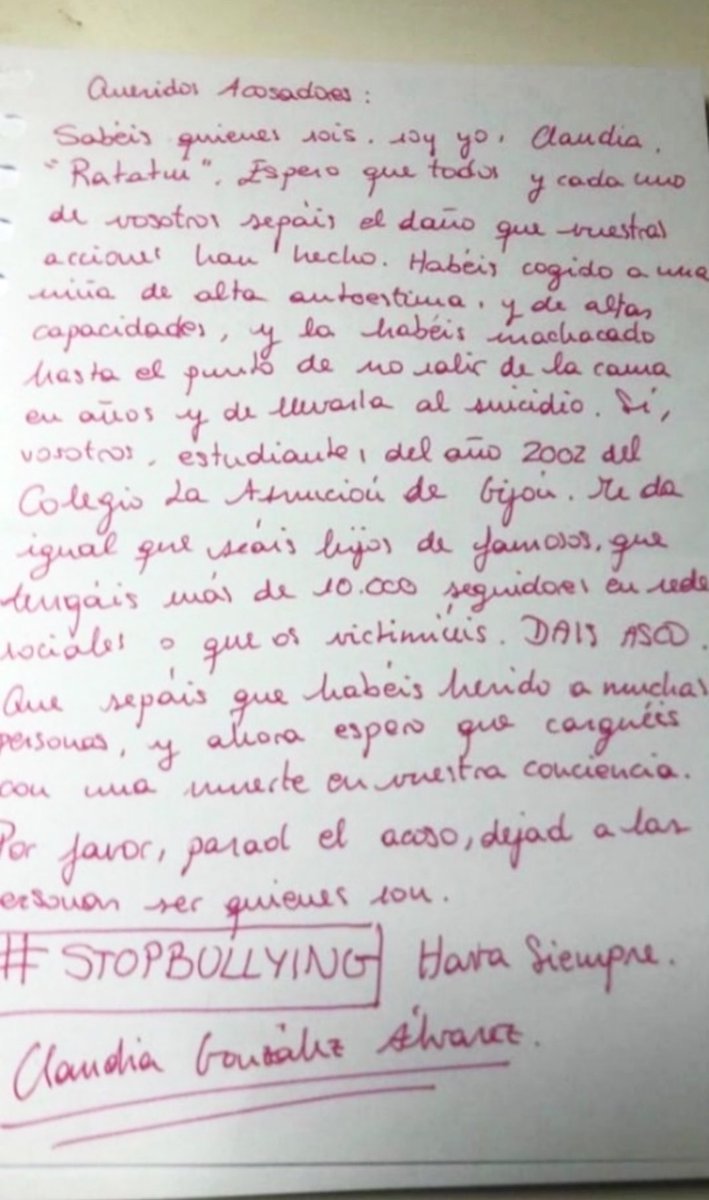 Queridos Acosadores:
Sabéis quienes sois. soy yo, Claudia.
"Ratatui". Espero que todos y cada uno
de vosotros sepáis el daño que vuestras
acciones han hecho. Habéis cogido a una
niña de alta autoestima, y de altas
capacidades, y la habéis machacado
hasta el punto de no salir de la cama
en años y de llevarla al suicidio. Sí,
vosotros, estudiantes del año 2002 del
Colegio La Asunción de Gijón. Me da
igual que seáis hijos de famosos, que
tengáis más de 10.000 seguidores en rede
sociales o que os victimicéis. DAIS ASCO.
Que sepáis que habéis herido a muchas
personas, y ahora espero que carguéis
con una muerte en vuestra conciencia.
Por favor, parad el acoso, dejad a las
ersonas ser quienes son.
#STOPBULLYING Hasta Siempre.
Claudia González Álvarez.